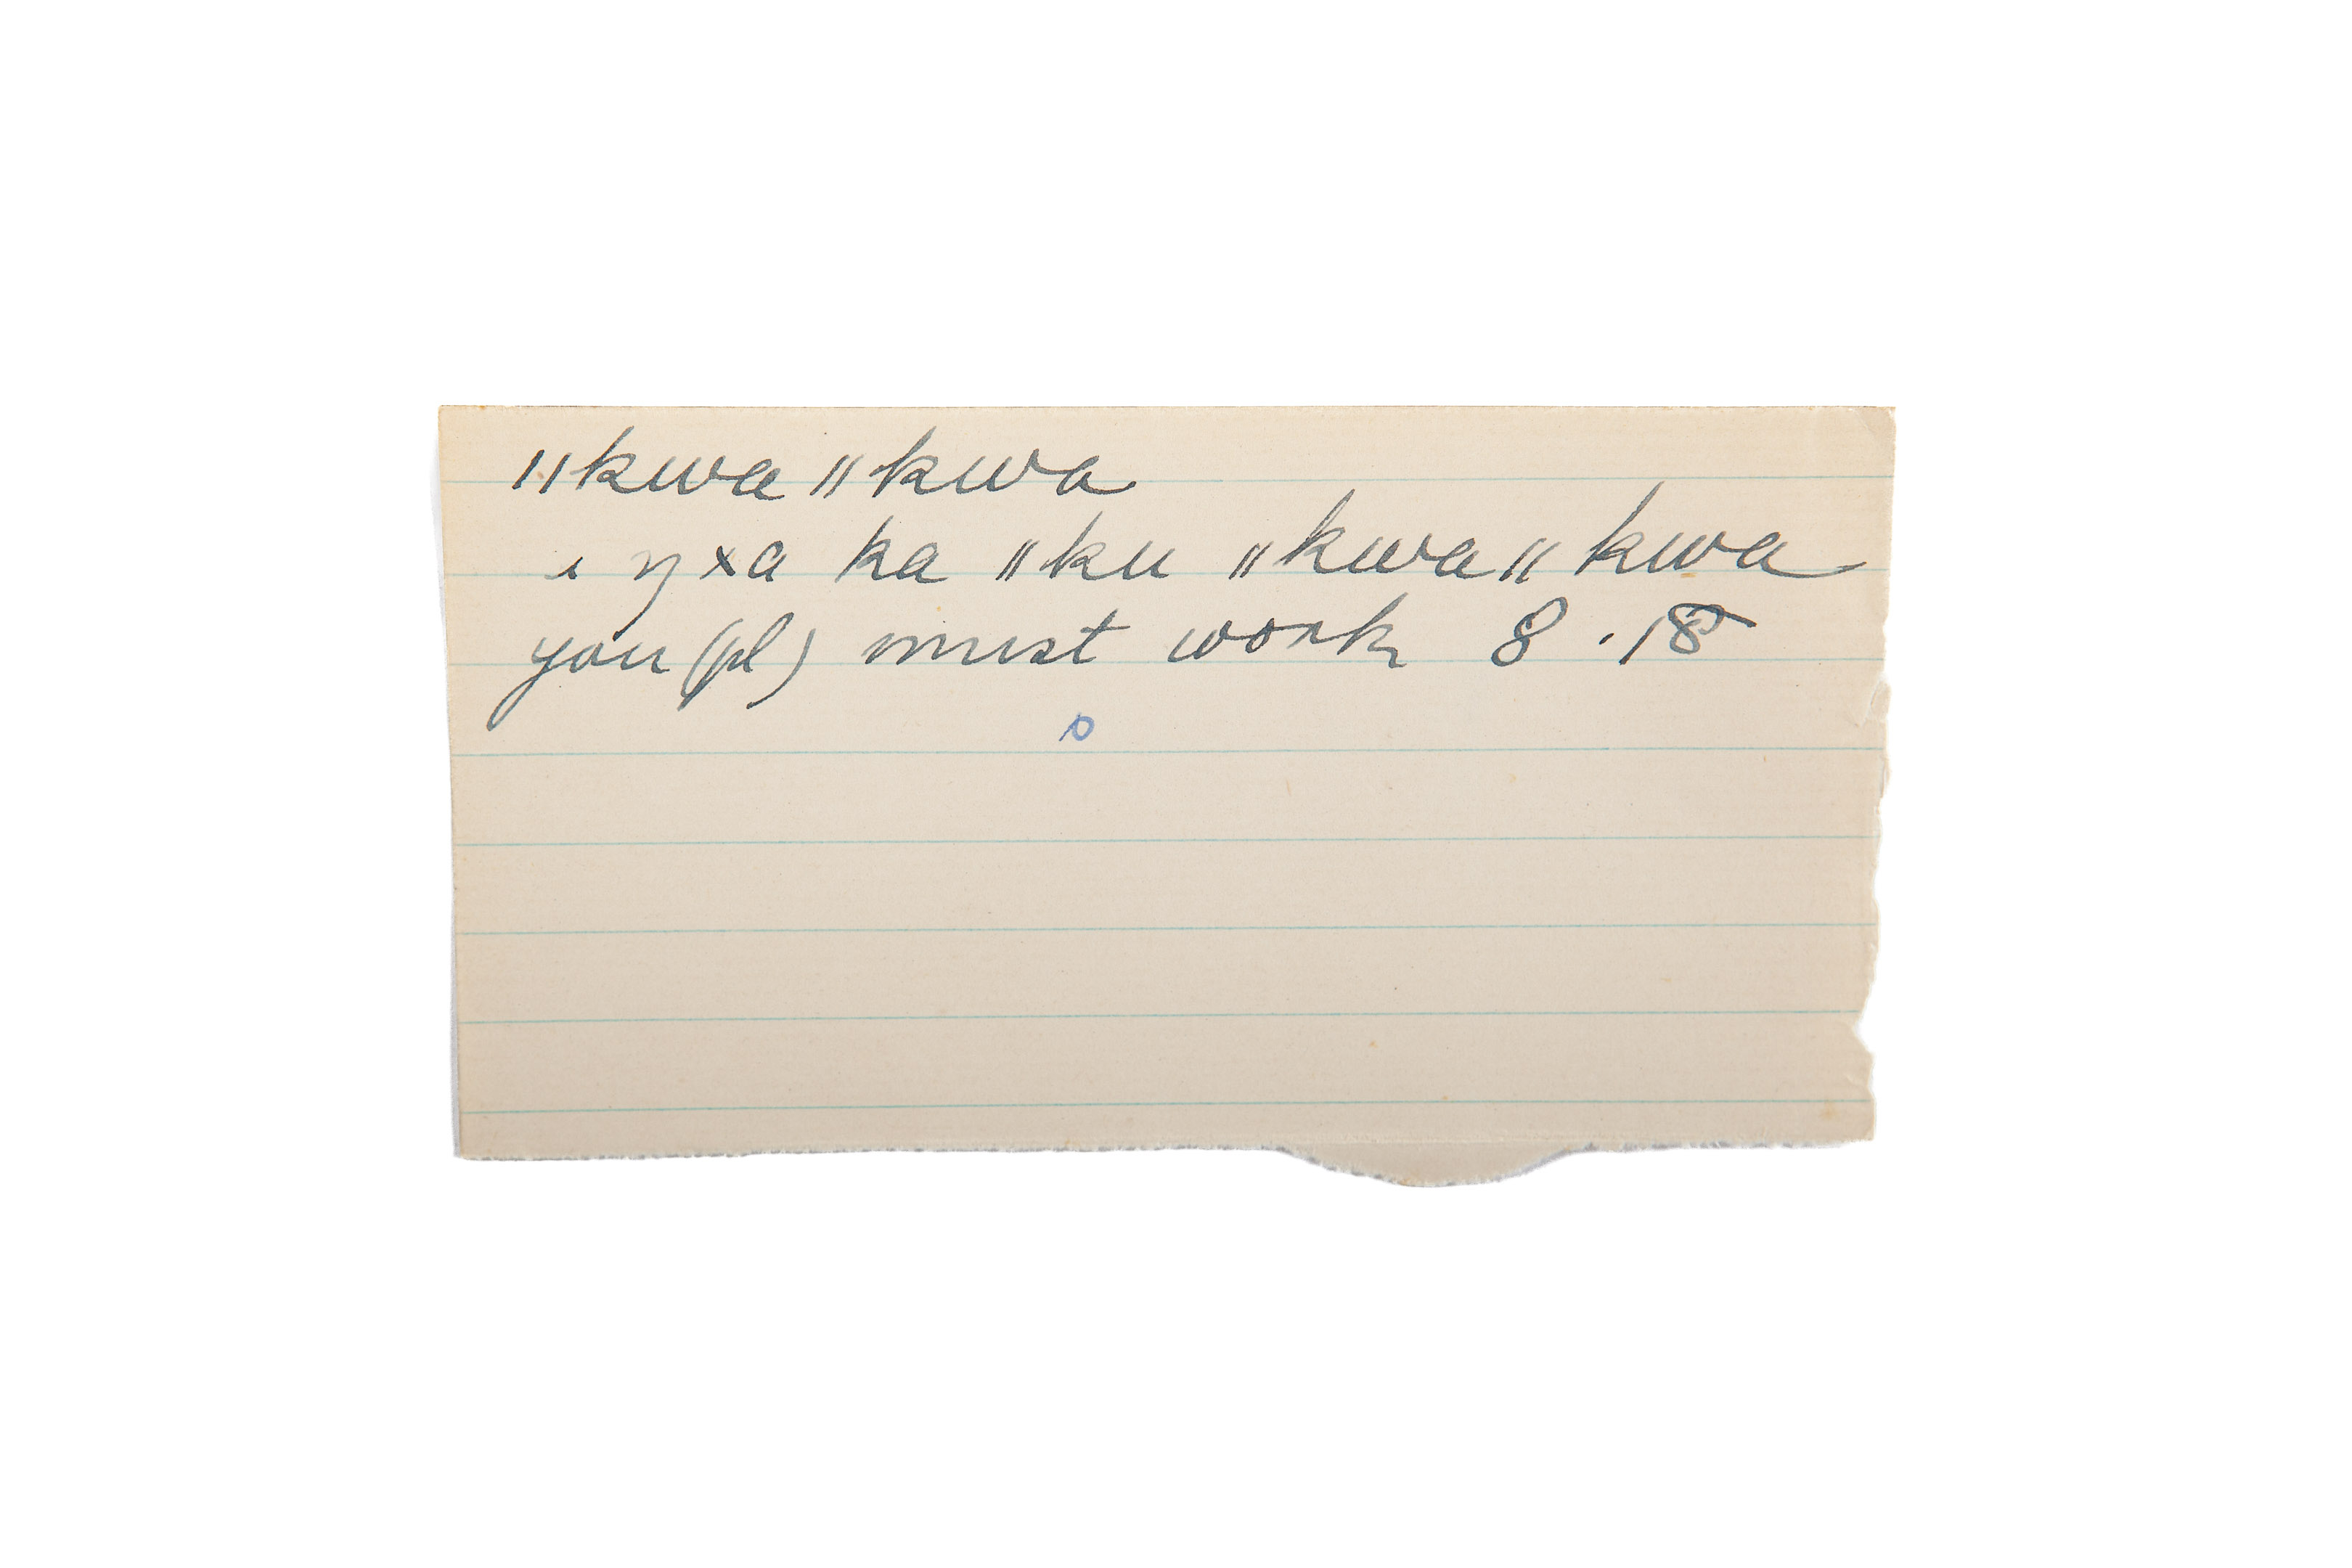 ǁkwa ǁkwa
i ŋxa ka ǁku ǁkwa ǁkwa
you (pl) must work 8.18
o